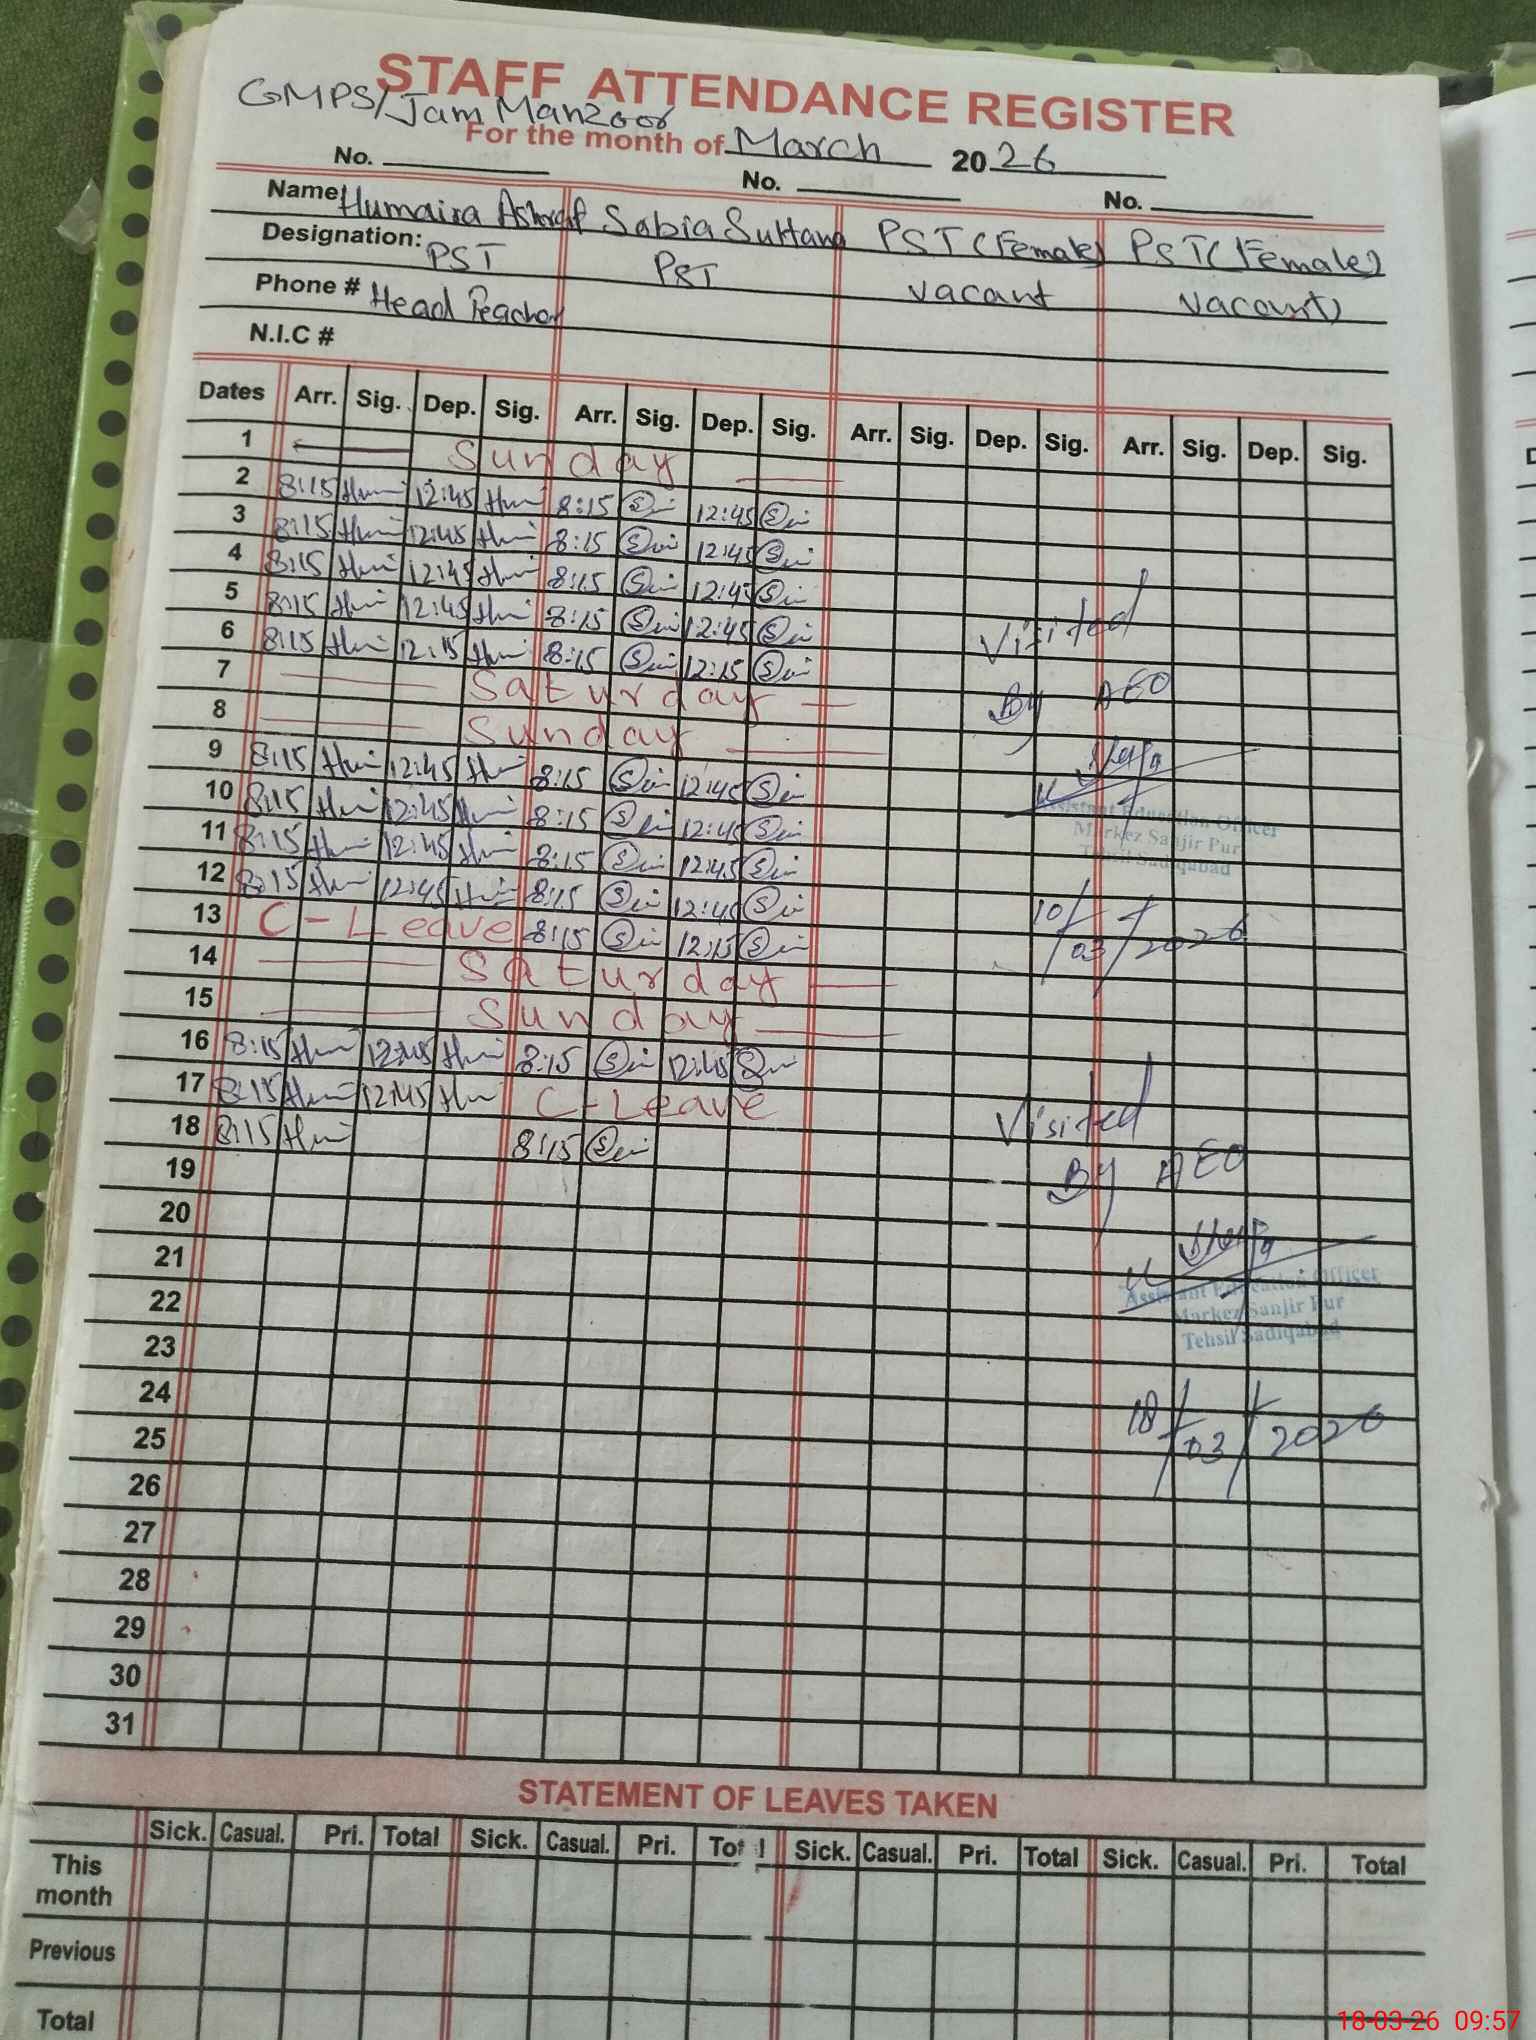 STAFF ATTENDANCE REGISTER
GMPS/Jam Manzoor
For the month of March 2026
No. No. No.
Name Humaira Ashraf Sabia Sultana PST (Female) PST (Female)
Designation: PST PST vacant vacant
Phone # Head Teacher
N.I.C #
Dates Arr. Sig. Dep. Sig. Arr. Sig. Dep. Sig. Arr. Sig. Dep. Sig. Arr. Sig. Dep. Sig.
1 Sunday
2 8:15 12:45 8:15 12:45
3 8:15 12:45 8:15 12:45
4 8:15 12:45 8:15 12:45
5 8:15 12:45 8:15 12:45
6 8:15 12:15 8:15 12:15
7 Saturday
8 Sunday
9 8:15 12:45 8:15 12:45
10 8:15 12:45 8:15 12:45
11 8:15 12:45 8:15 12:45
12 8:15 12:45 8:15 12:45
13 C-Leave 8:15 12:15
14 Saturday
15 Sunday
16 8:15 12:45 8:15 12:45
17 8:15 12:45 C-Leave
18 8:15 8:15
19
20
21
22
23
24
25
26
27
28
29
30
31
Visited
By AEO
Assistant Education Officer
Markez Sanjir Pur
Tehsil Sadiqabad
10/03/2026
Visited
By AEO
Assistant Education Officer
Markez Sanjir Pur
Tehsil Sadiqabad
18/03/2026
STATEMENT OF LEAVES TAKEN
Sick. Casual. Pri. Total Sick. Casual. Pri. Total Sick. Casual. Pri. Total Sick. Casual. Pri. Total
This
month
Previous
Total
18-03-26 09:57